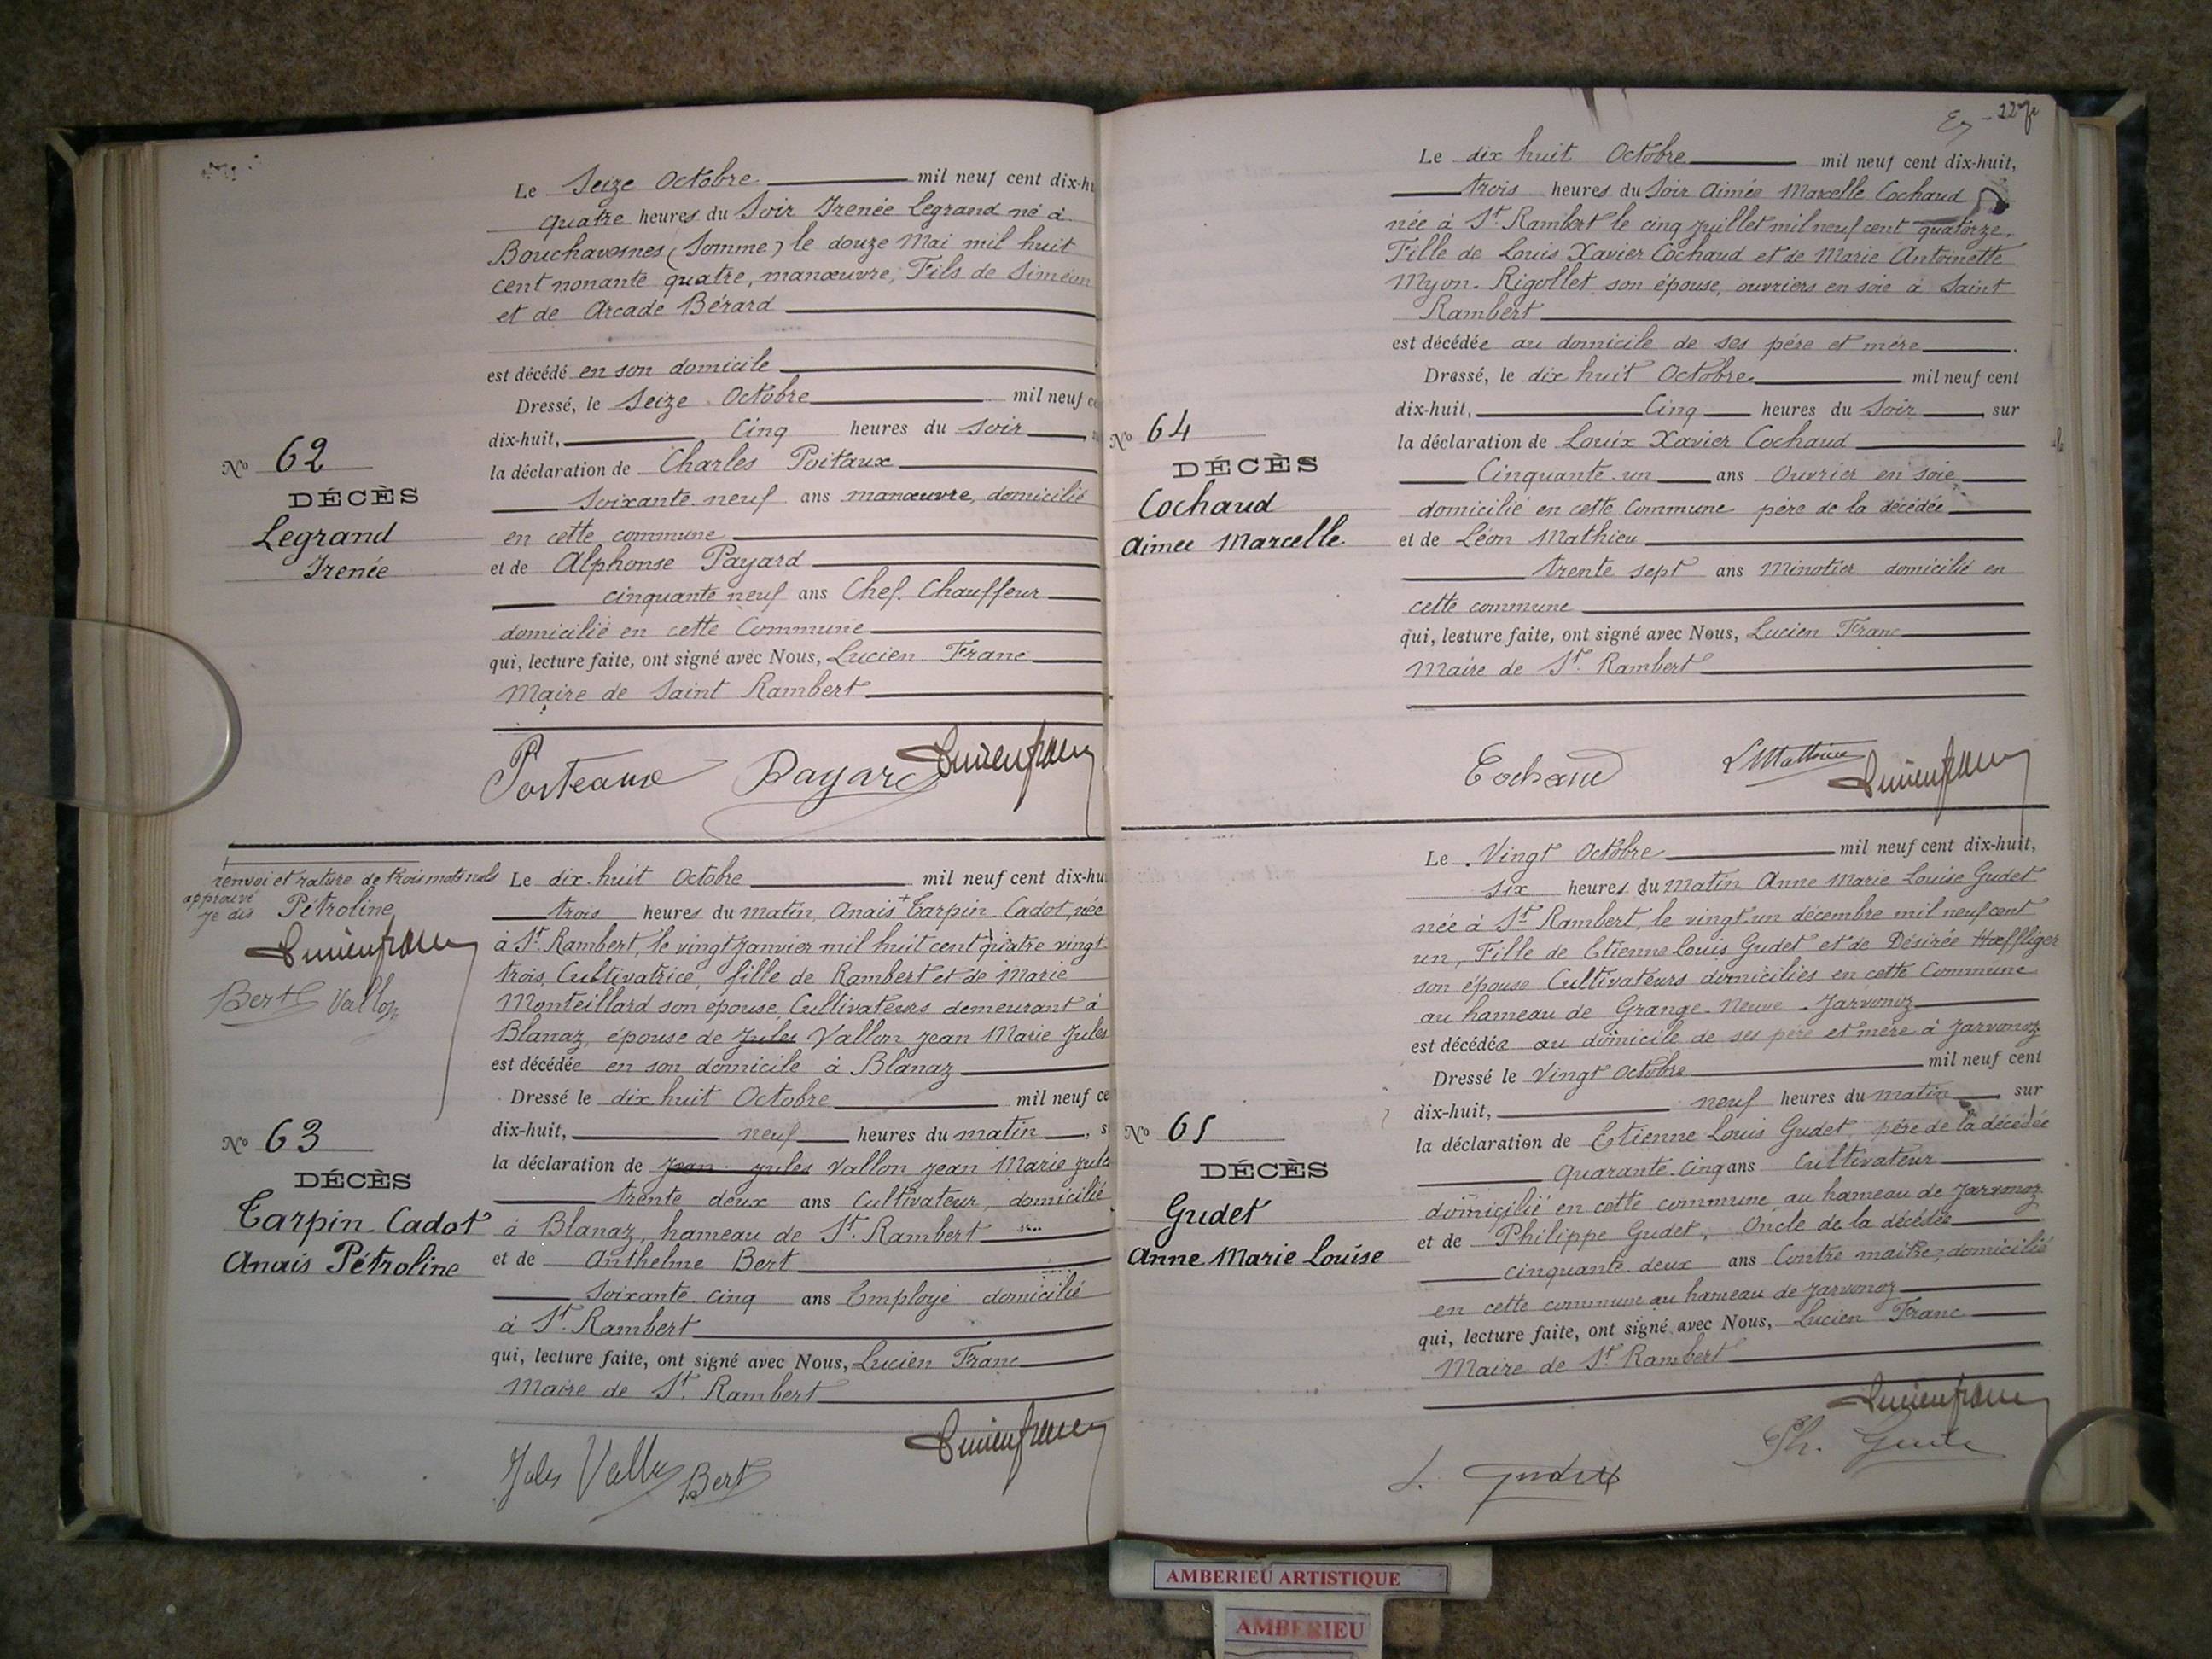 Le Seize Octobre mil neuf cent dix-hu
quatre heures du Soir Irenée Legrand né à
Bouchavesnes (Somme) le douze Mai mil huit
cent nonante quatre, manœuvre, Fils de Siméon
et de Arcade Bérard
est décédé en son domicile
Dressé, le Seize Octobre mil neuf ce
dix-huit, Cinq heures du Soir
No 62
la déclaration de Charles Poitaux
DÉCÈS
soixante neuf ans manœuvre, domicilié
Legrand
en cette commune
Irenée
et de Alphonse Payard
cinquante neuf ans Chef. Chauffeur
domicilié en cette Commune
qui, lecture faite, ont signé avec Nous, Lucien Franc
Maire de Saint Rambert
Payard Lucien franc
renvoi et rature de trois mots nuls
approuvé
je dis Pétroline
Lucien franc
Bert Vallon
Le dix huit Octobre mil neuf cent dix-hu
trois heures du matin, Anais + Tarpin Cadot, née
à St. Rambert, le vingt Janvier mil huit cent quatre vingt
trois, Cultivatrice, fille de Rambert et de Marie
Monteillard son épouse, Cultivateurs demeurant à
Blanaz, épouse de Jules Vallon Jean Marie Jules
est décédée en son domicile à Blanaz
Dressé le dix huit Octobre mil neuf ce
No 63
dix-huit, neuf heures du matin, s
DÉCÈS
la déclaration de Jean Jules Vallon Jean Marie Jules
Tarpin-Cadot
trente deux ans Cultivateur, domicilié
Anais Pétroline
à Blanaz, hameau de St. Rambert
et de Anthelme Bert
soixante cinq ans Employé domicilié
à St. Rambert
qui, lecture faite, ont signé avec Nous, Lucien Franc
Maire de St. Rambert
Lucien franc
Jules Vallon Bert
Le dix huit Octobre mil neuf cent dix-huit,
trois heures du Soir Aimée Marcelle Cochaud
née à St. Rambert le cinq Juillet mil neuf cent quatorze.
Fille de Louis Xavier Cochaud et de Marie Antoinette
Myon-Rigollet son épouse, ouvriers en soie à Saint
Rambert
est décédée au domicile de ses père et mère
Dressé, le dix huit Octobre mil neuf cent
dix-huit, Cinq heures du Soir, sur
No 64
la déclaration de Louix Xavier Cochaud
DÉCÈS
Cinquante-un ans Ouvrier en soie
Cochaud
domicilié en cette Commune père de la décédée
Aimee Marcelle
et de Léon Mathieu
trente sept ans Minotier domicilié en
cette commune
qui, lecture faite, ont signé avec Nous, Lucien Franc
Maire de St. Rambert
Cochaud L Mathieu Lucien franc
Le Vingt Octobre mil neuf cent dix-huit,
six heures du matin Anne Marie Louise Gudet
née à St Rambert, le vingt-un décembre mil neuf cent
un, Fille de Etienne Louis Gudet et de Désirée Hoeffliger
son épouse Cultivateurs domiciliés en cette Commune
au hameau de Grange-Neuve-Jarvonoz
est décédée au domicile de ses père et mère à Jarvonoz
Dressé le Vingt Octobre mil neuf cent
No 65
dix-huit, neuf heures du matin, sur
DÉCÈS
la déclaration de Etienne Louis Gudet, père de la décédée
Gudet
quarante-cinq ans Cultivateur
Anne Marie Louise
domicilié en cette commune au hameau de Jarvonoz
et de Philippe Gudet, Oncle de la décédée
cinquante deux ans Contre maitre, domicilié
en cette commune au hameau de Jarvonoz
qui, lecture faite, ont signé avec Nous, Lucien Franc
Maire de St Rambert
Lucien franc
L. Gudet Ph. Gudet
AMBERIEU ARTISTIQUE
AMBERIEU